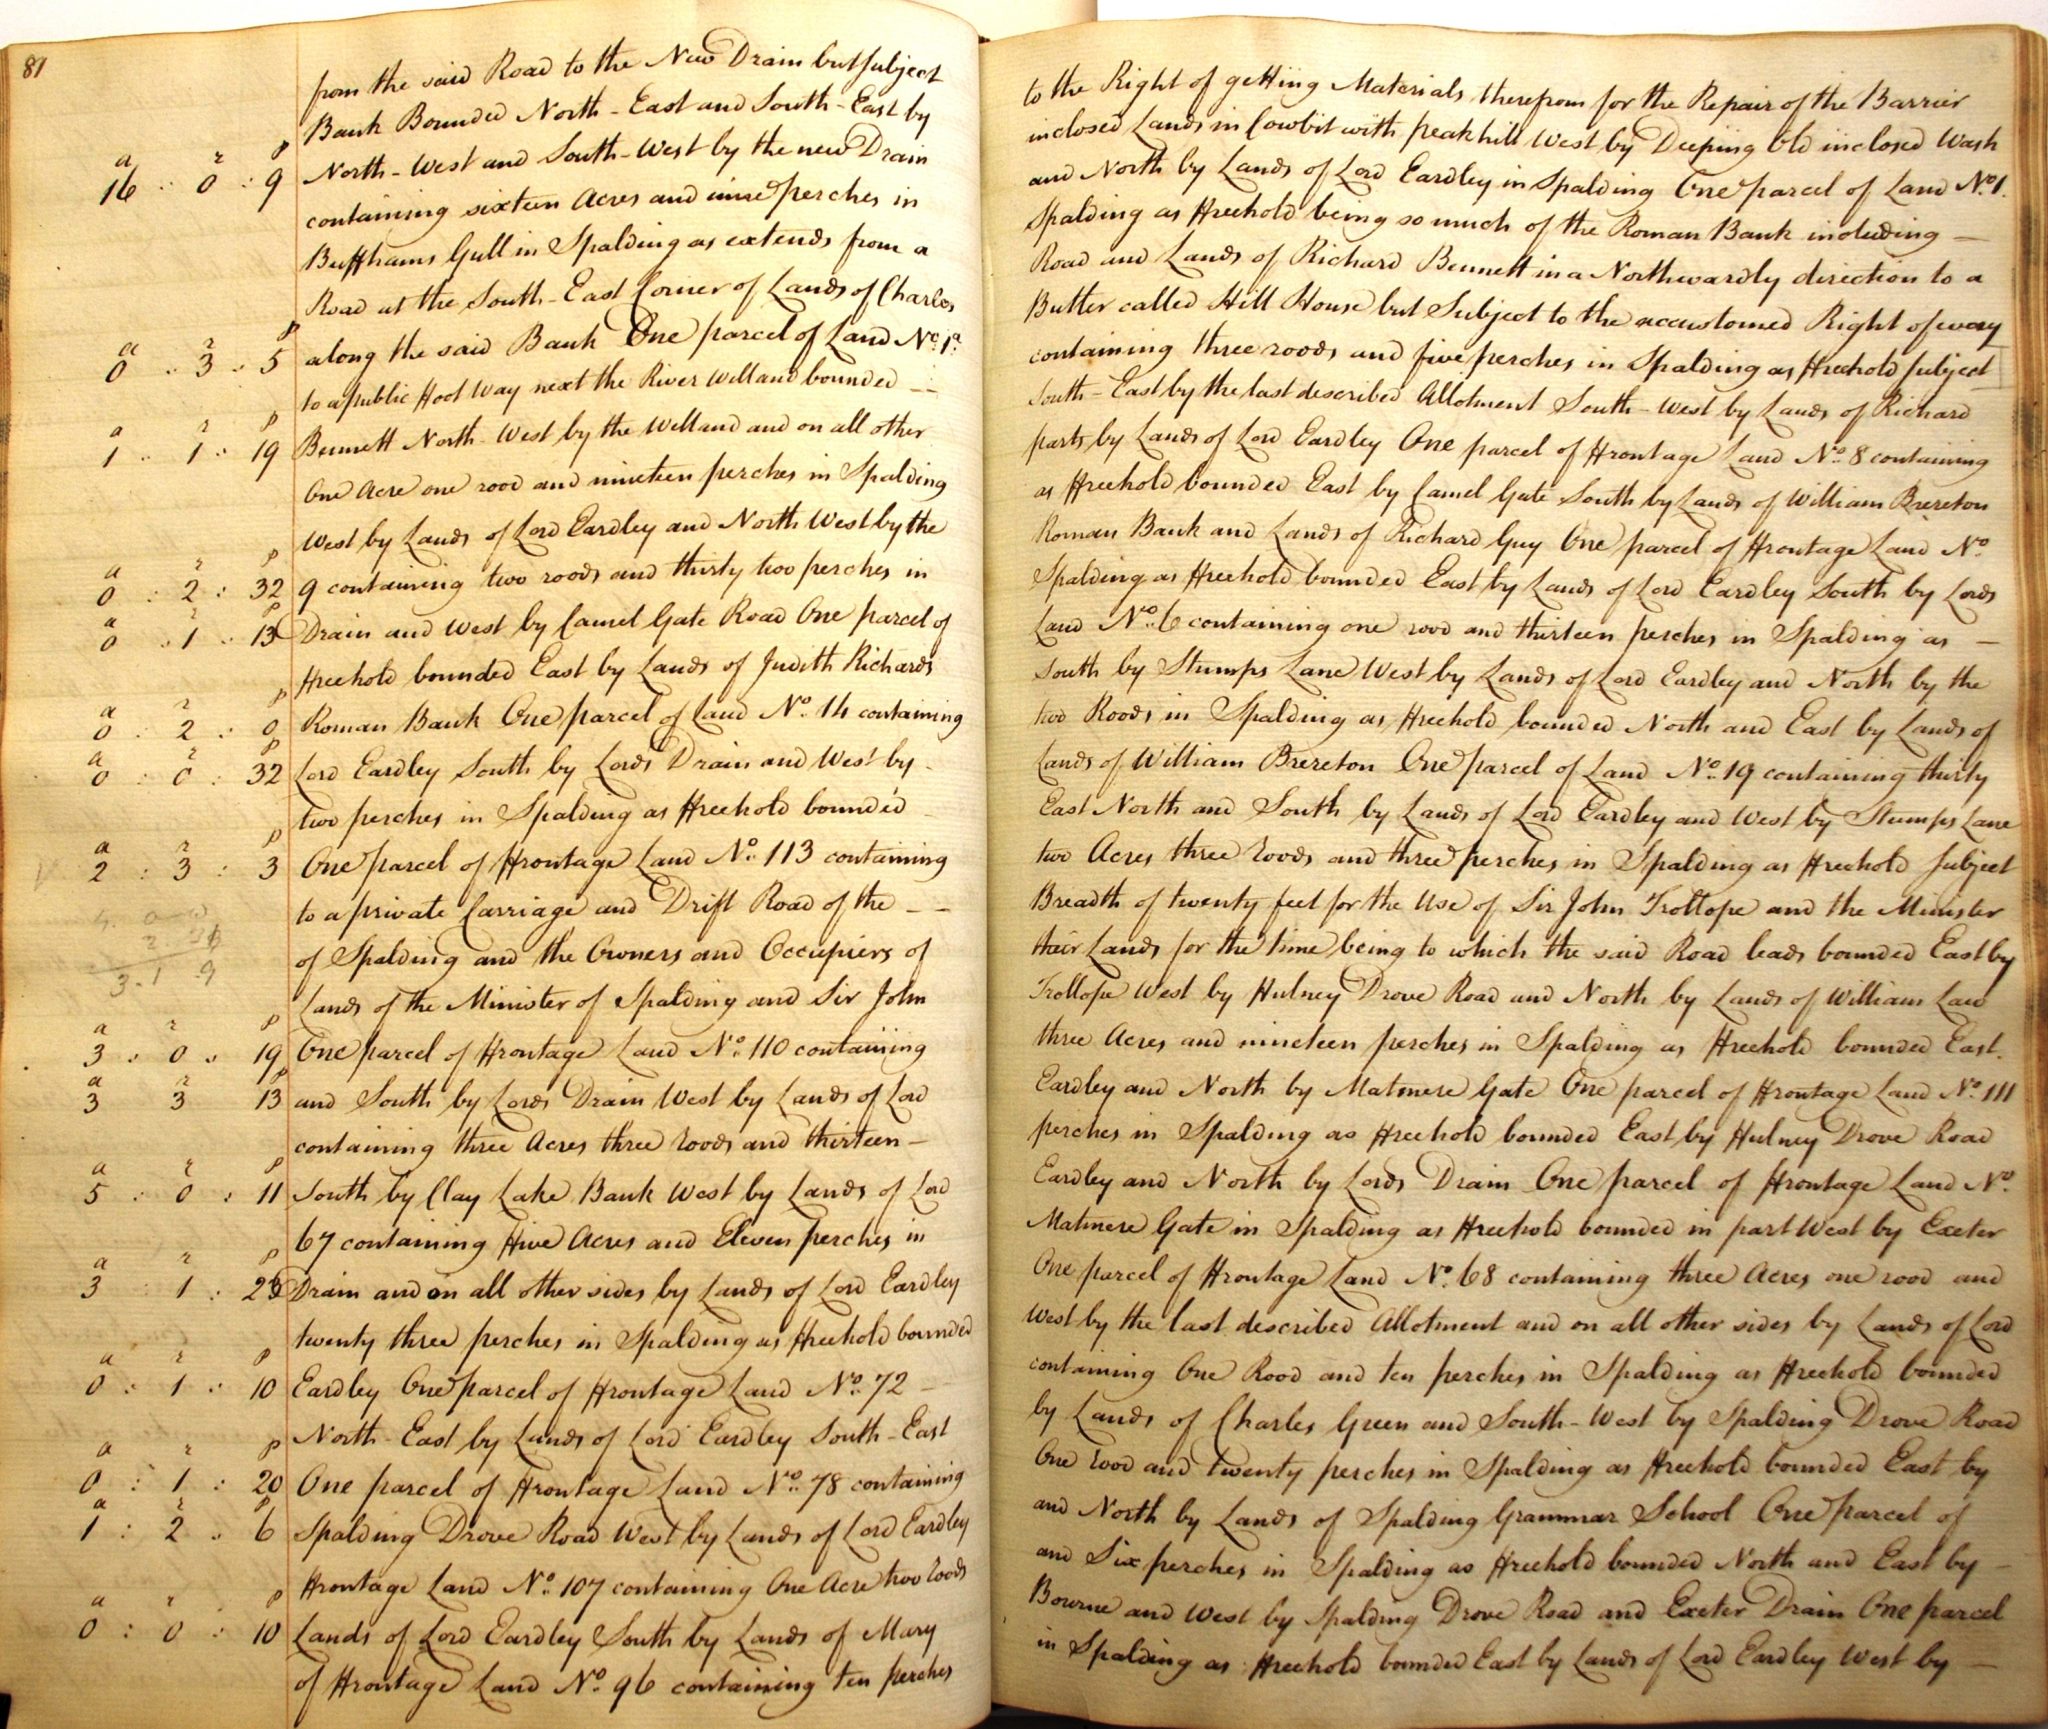 81
from the said Road to the New Drain but subject
to the Right of getting Materials therefrom for the Repair of the Barrier
Bank Bounded North-East and South-East by
inclosed Lands in Cowbit with peakhill West by Deeping Old inclosed Wash
a r p
16 : 0 : 9
North-West and South-West by the new Drain
and North by Lands of Lord Eardley in Spalding One parcel of Land No. 1.
containing sixteen Acres and nine perches in
Spalding as Freehold being so much of the Roman Bank including —
Buffhams Gull in Spalding as extends from a
Road and Lands of Richard Bennett in a Northwardly direction to a
Road at the South-East Corner of Lands of Charles
Butter called Hill House but Subject to the accustomed Right of way
a r p
0 : 3 : 5
along the said Bank One parcel of Land No. 1a.
containing three roods and five perches in Spalding as Freehold subject
to a public Foot Way next the River Welland bounded —
South-East by the last described Allotment South-West by Lands of Richard
a r p
1 : 1 : 19
Bennett North-West by the Welland and on all other
parts by Lands of Lord Eardley One parcel of Frontage Land No. 8 containing
One Acre one rood and nineteen perches in Spalding
as Freehold bounded East by Camel Gate South by Lands of William Brereton
West by Lands of Lord Eardley and North West by the
Roman Bank and Lands of Richard Guy One parcel of Frontage Land No.
a r p
0 : 2 : 32
9 containing two roods and thirty two perches in
Spalding as Freehold bounded East by Lands of Lord Eardley South by Lords
a r p
0 : 1 : 13
Drain and West by Camel Gate Road One parcel of
Land No. 6 containing one rood and thirteen perches in Spalding as —
Freehold bounded East by Lands of Judith Richards
South by Stumps Lane West by Lands of Lord Eardley and North by the
a r p
0 : 2 : 0
Roman Bank One parcel of Land No. 14 containing
two Roods in Spalding as Freehold bounded North and East by Lands of
a r p
0 : 0 : 32
Lord Eardley South by Lords Drain and West by
Lands of William Brereton One parcel of Land No. 19 containing thirty
two perches in Spalding as Freehold bounded
East North and South by Lands of Lord Eardley and West by Stumps Lane
a r p
2 : 3 : 3
One parcel of Frontage Land No. 113 containing
two Acres three roods and three perches in Spalding as Freehold subject
to a private Carriage and Drift Road of the — —
Breadth of twenty feet for the Use of Sir John Trollope and the Minister
of Spalding and the Owners and Occupiers of
their Lands for the time being to which the said Road leads bounded East by
3 . 1 . 9
Lands of the Minister of Spalding and Sir John
Trollope West by Hulney Drove Road and North by Lands of William Law
a r p
3 : 0 : 19
One parcel of Frontage Land No. 110 containing
three Acres and nineteen perches in Spalding as Freehold bounded East
a r p
3 3 13
and South by Lords Drain West by Lands of Lord
Eardley and North by Matmere Gate One parcel of Frontage Land No. 111
containing three Acres three roods and thirteen —
perches in Spalding as Freehold bounded East by Hulney Drove Road
a r p
5 : 0 : 11
South by Clay Lake Bank West by Lands of Lord
Eardley and North by Lords Drain One parcel of Frontage Land No.
67 containing Five Acres and Eleven perches in
Matmere Gate in Spalding as Freehold bounded in part West by Exeter
a r p
3 : 1 : 23
Drain and on all other sides by Lands of Lord Eardley
One parcel of Frontage Land No. 68 containing three Acres one rood and
twenty three perches in Spalding as Freehold bounded
West by the last described Allotment and on all other sides by Lands of Lord
a r p
0 : 1 : 10
Eardley One parcel of Frontage Land No. 72 —
containing One Rood and ten perches in Spalding as Freehold bounded
North-East by Lands of Lord Eardley South-East
by Lands of Charles Green and South-West by Spalding Drove Road
a r p
0 : 1 : 20
One parcel of Frontage Land No. 78 containing
One rood and twenty perches in Spalding as Freehold bounded East by
a r p
1 : 2 : 6
Spalding Drove Road West by Lands of Lord Eardley
and North by Lands of Spalding Grammar School One parcel of
Frontage Land No. 107 containing One Acre two roods
and Six perches in Spalding as Freehold bounded North and East by
a r p
0 : 0 : 10
Lands of Lord Eardley South by Lands of Mary
Bourne and West by Spalding Drove Road and Exeter Drain One parcel
of Frontage Land No. 96 containing ten perches
in Spalding as Freehold bounded East by Lands of Lord Eardley West by —